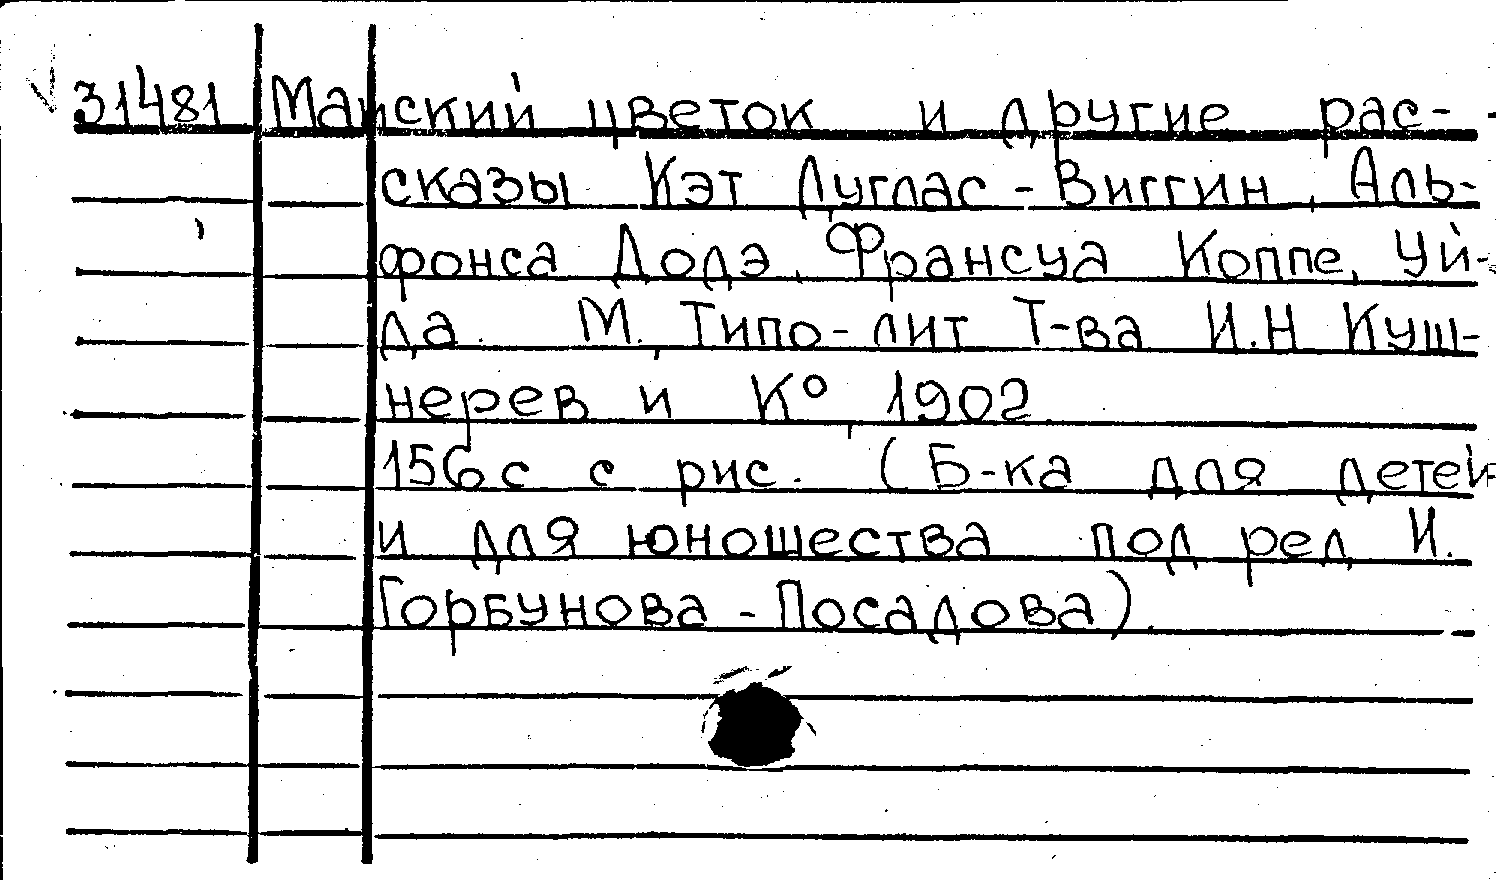 31481 Майский цветок и другие рас-
сказы Кэт Дуглас-Виггин, Аль-
фонса Додэ, Франсуа Коппе, Уй-
да. М., Типо-лит Т-ва И.Н Куш-
нерев и К°, 1902
156с с рис. (Б-ка для детей
и для юношества под ред И.
Горбунова-Посадова).